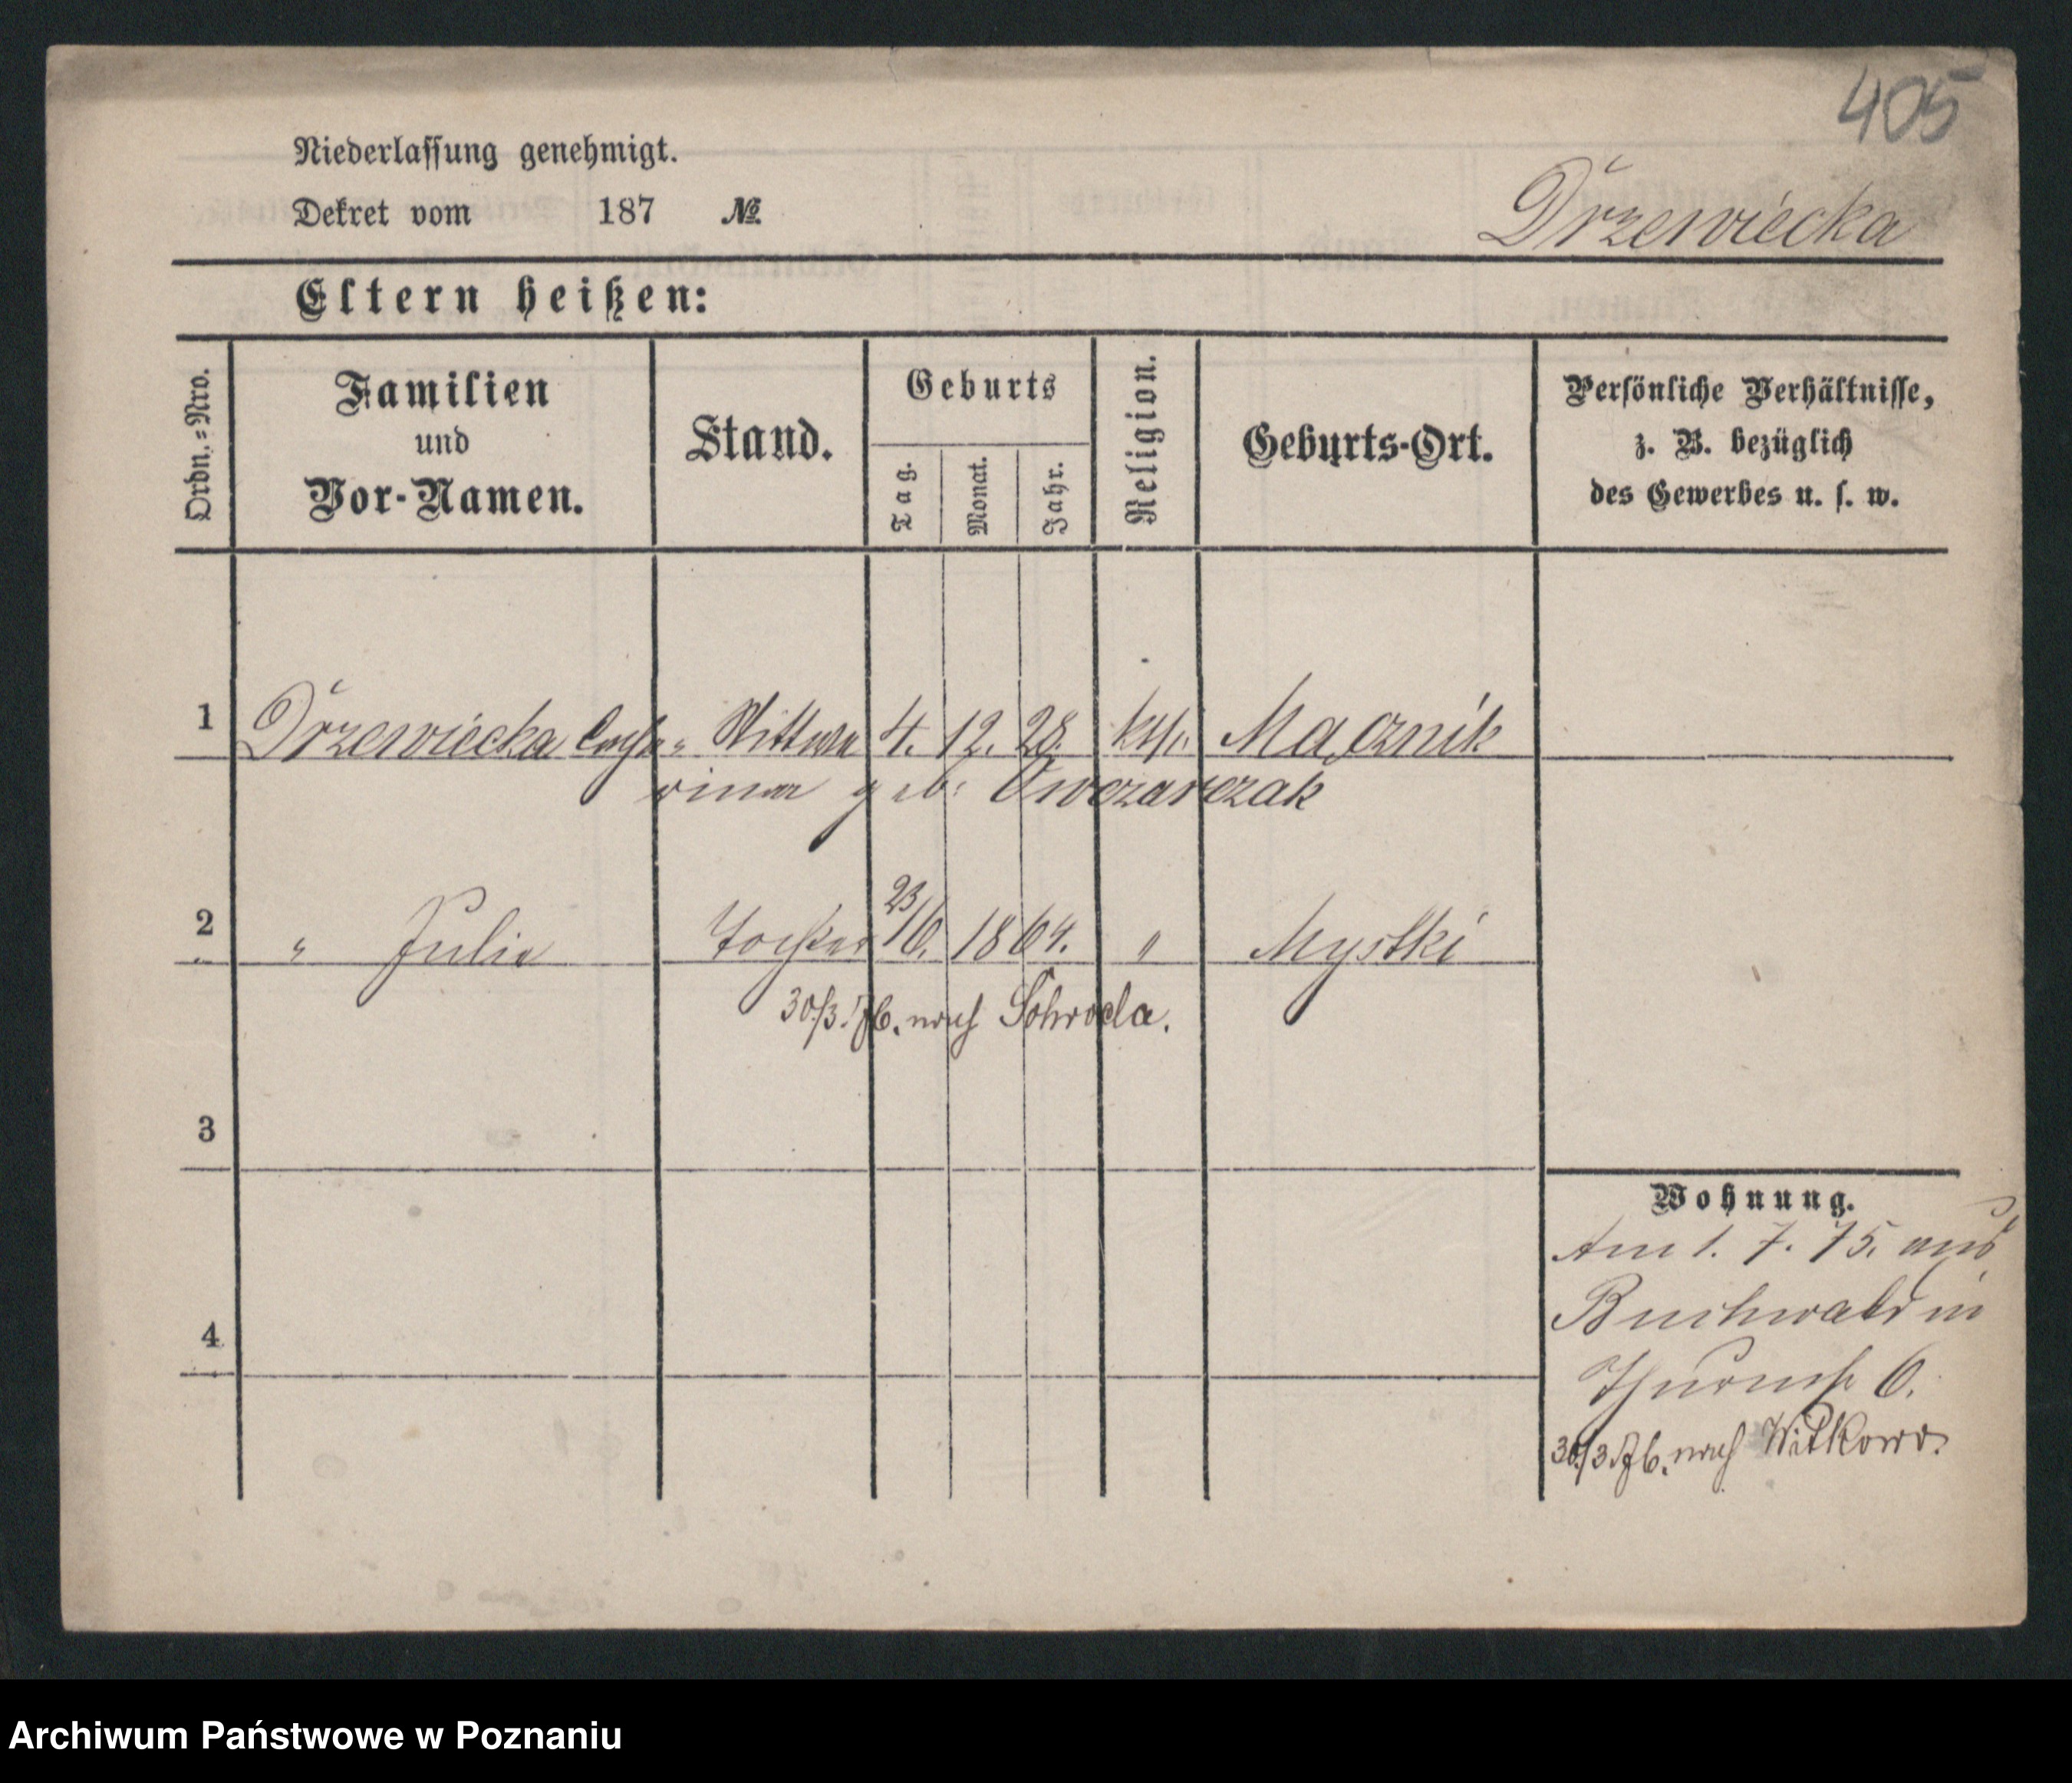 405
Niederlassung genehmigt.
Dekret vom 187 №
Drzewiecka
Eltern heißen:
Ordn.=Nro.
Familien
und
Vor-Namen.
Stand.
Geburts
Tag.
Monat.
Jahr.
Religion.
Geburts-Ort.
Persönliche Verhältnisse,
z. B. bezüglich
des Gewerbes u. s. w.
1 Drzewiecka Wittwe 4. 12. 28. kth. Mącznik
geb: Owczarczak
2 " Julia Tochter 23/6. 1864. " Mystki
30/3. 76. nach Schroda.
3
4
Wohnung.
Am 1. 7. 75. aus
Buchwald in
Thurmstr 6.
30/3. 76. nach Witkowo.
Archiwum Państwowe w Poznaniu